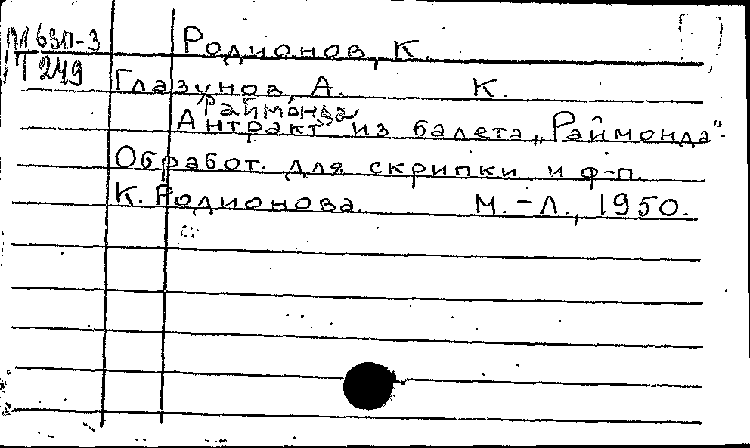 М 63П-3
Т 249
Родионов, К.
Глазунов, А. К.
Раймонда
Антракт из балета „Раймонда“.
Обработ. для скрипки и ф-п.
К. Родионова. М.-Л., 1950.